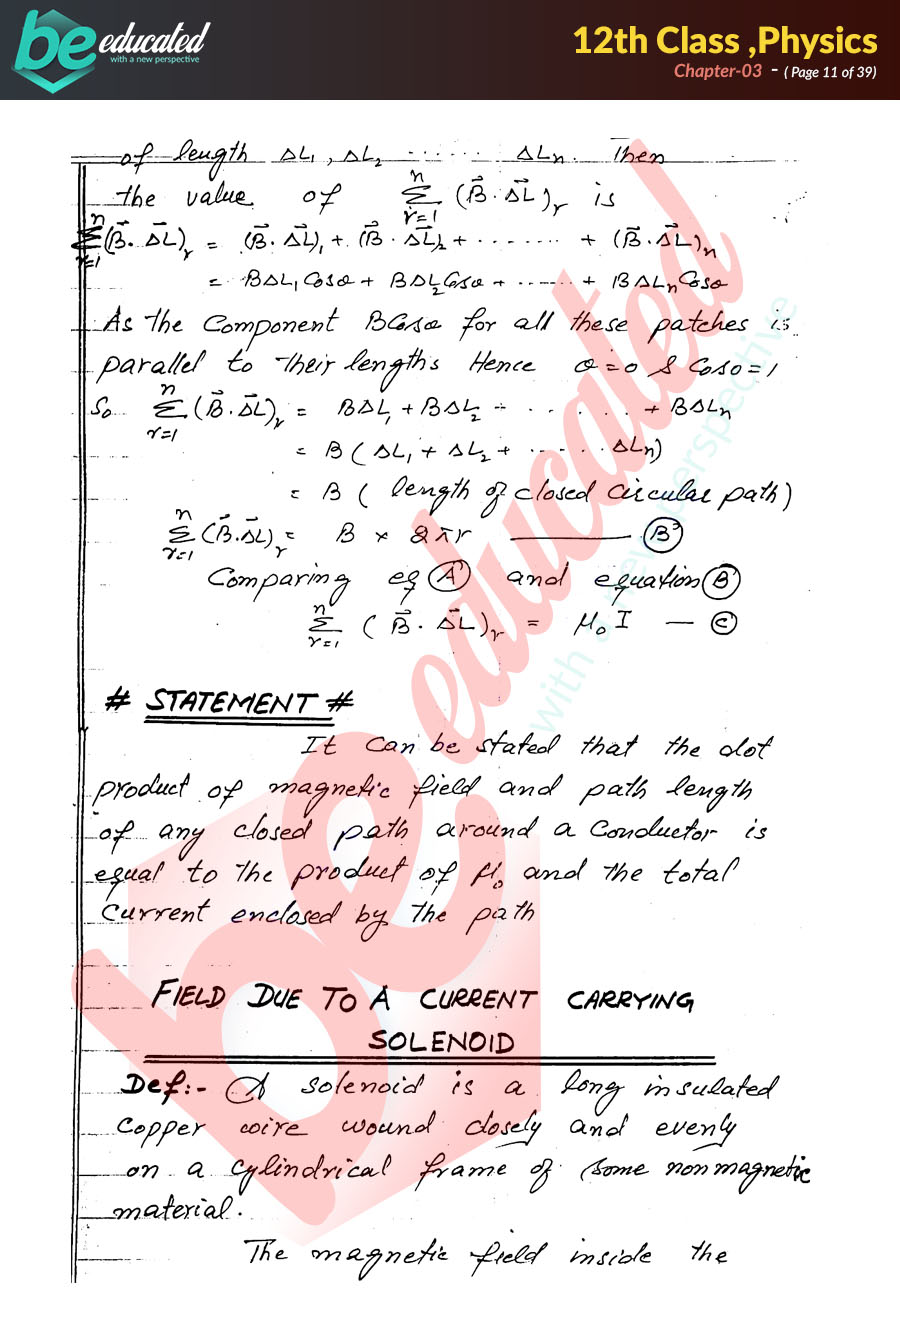 be educated
with a new perspective
12th Class ,Physics
Chapter-03 - ( Page 11 of 39)
of length ΔL₁, ΔL₂ ....... ΔLₙ. Then
the value of Σ(r=1 to n) (B⃗ · ΔL⃗)ᵣ is
Σ(r=1 to n) (B⃗ · ΔL⃗)ᵣ = (B⃗ · ΔL⃗)₁ + (B⃗ · ΔL⃗)₂ + ........ + (B⃗ · ΔL⃗)ₙ
= BΔL₁Cosθ + BΔL₂Cosθ + ...... + BΔLₙCosθ
As the Component BCosθ for all these patches is
parallel to their lengths Hence θ=0 & Cos0=1
So Σ(r=1 to n) (B⃗ · ΔL⃗)ᵣ = BΔL₁ + BΔL₂ + ...... + BΔLₙ
= B ( ΔL₁ + ΔL₂ + ...... ΔLₙ)
= B ( length of closed circular path)
Σ(r=1 to n) (B⃗ · ΔL⃗)ᵣ = B × 2πr ——— (B)
Comparing eq (A) and equation (B)
Σ(r=1 to n) ( B⃗ · ΔL⃗)ᵣ = μ₀ I — (C)
# STATEMENT #
It can be stated that the dot
product of magnetic field and path length
of any closed path around a Conductor is
equal to the product of μ₀ and the total
Current enclosed by the path
FIELD DUE TO A CURRENT CARRYING
SOLENOID
Def:- A solenoid is a long insulated
Copper wire wound closely and evenly
on a cylindrical frame of some nonmagnetic
material.
The magnetic field inside the
be educated
with a new perspective